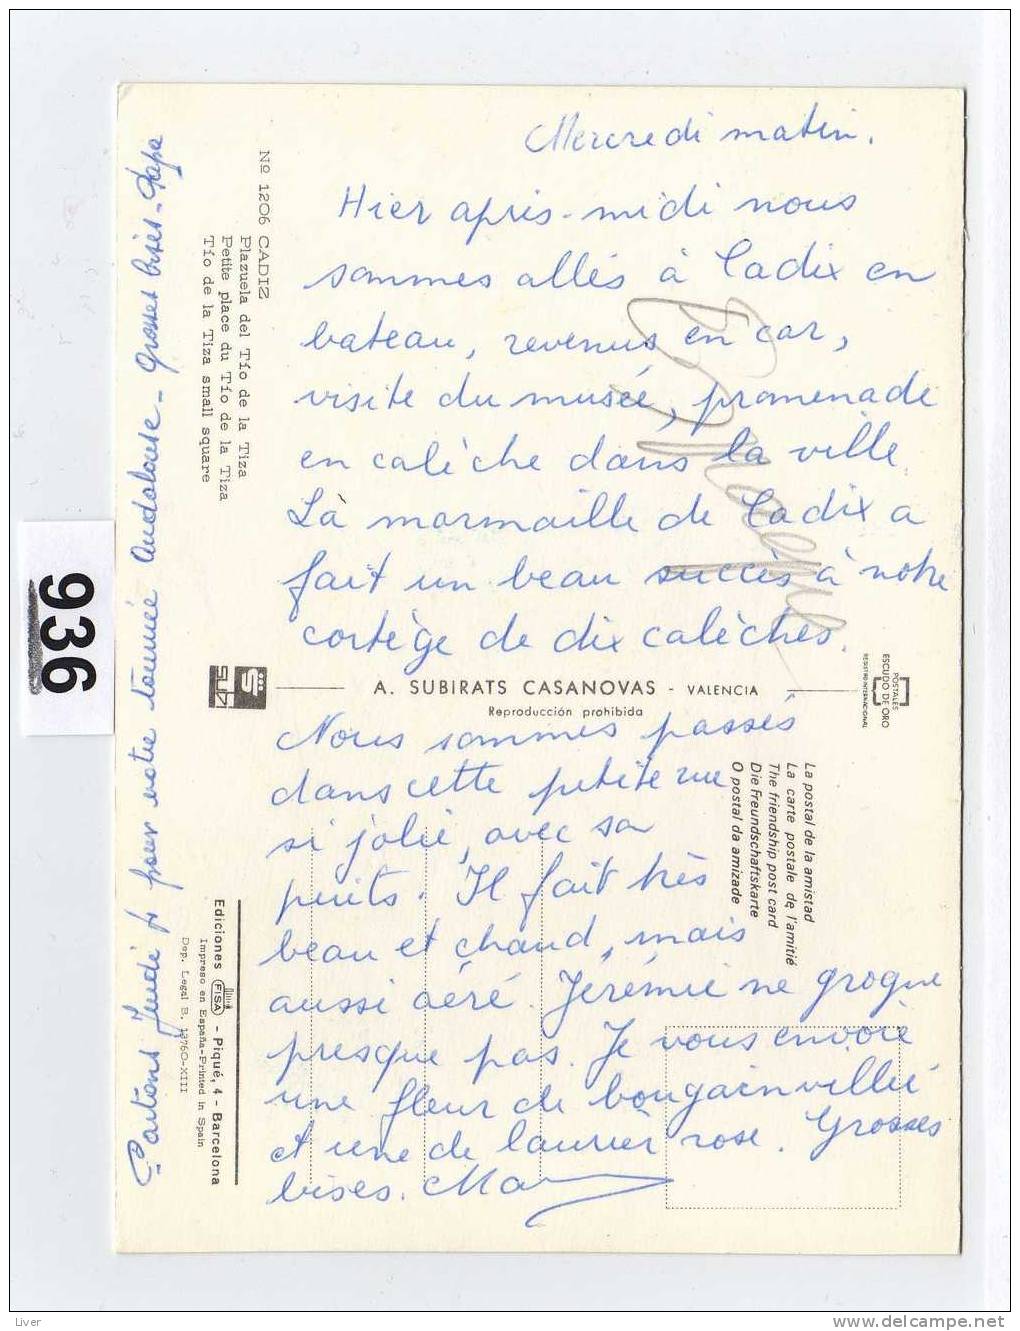 Mercredi matin.
Hier après-midi nous
sommes allés à Cadix en
bateau, revenus en car,
visite du musée, promenade
en calèche dans la ville.
La marmaille de Cadix a
fait un beau succès à notre
cortège de dix calèches.
Nous sommes passés
dans cette petite rue
si jolie, avec sa
puits. Il fait très
beau et chaud, mais
aussi aéré. Jérémie ne grogne
presque pas. Je vous envoie
une fleur de bougainvillée
et une de laurier rose. Grosses
bises.
Partons Jeudi pour notre tournée Andalouse - Grosses bises - Papa
Nº 1206 CADIZ
Plazuela del Tío de la Tiza
Petite place du Tío de la Tiza
Tío de la Tiza small square
936
SUZI
A. SUBIRATS CASANOVAS - VALENCIA
Reproducción prohibida
POSTALES
ESCUDO DE ORO
REGISTRO INTERNACIONAL
La postal de la amistad
La carte postale de l'amitié
The friendship post card
Die Freundschaftskarte
O postal da amizade
Ediciones FISA - Piqué, 4 - Barcelona
Impreso en España-Printed in Spain
Dep. Legal B. 13760-XIII
Liver
www.delcampe.net